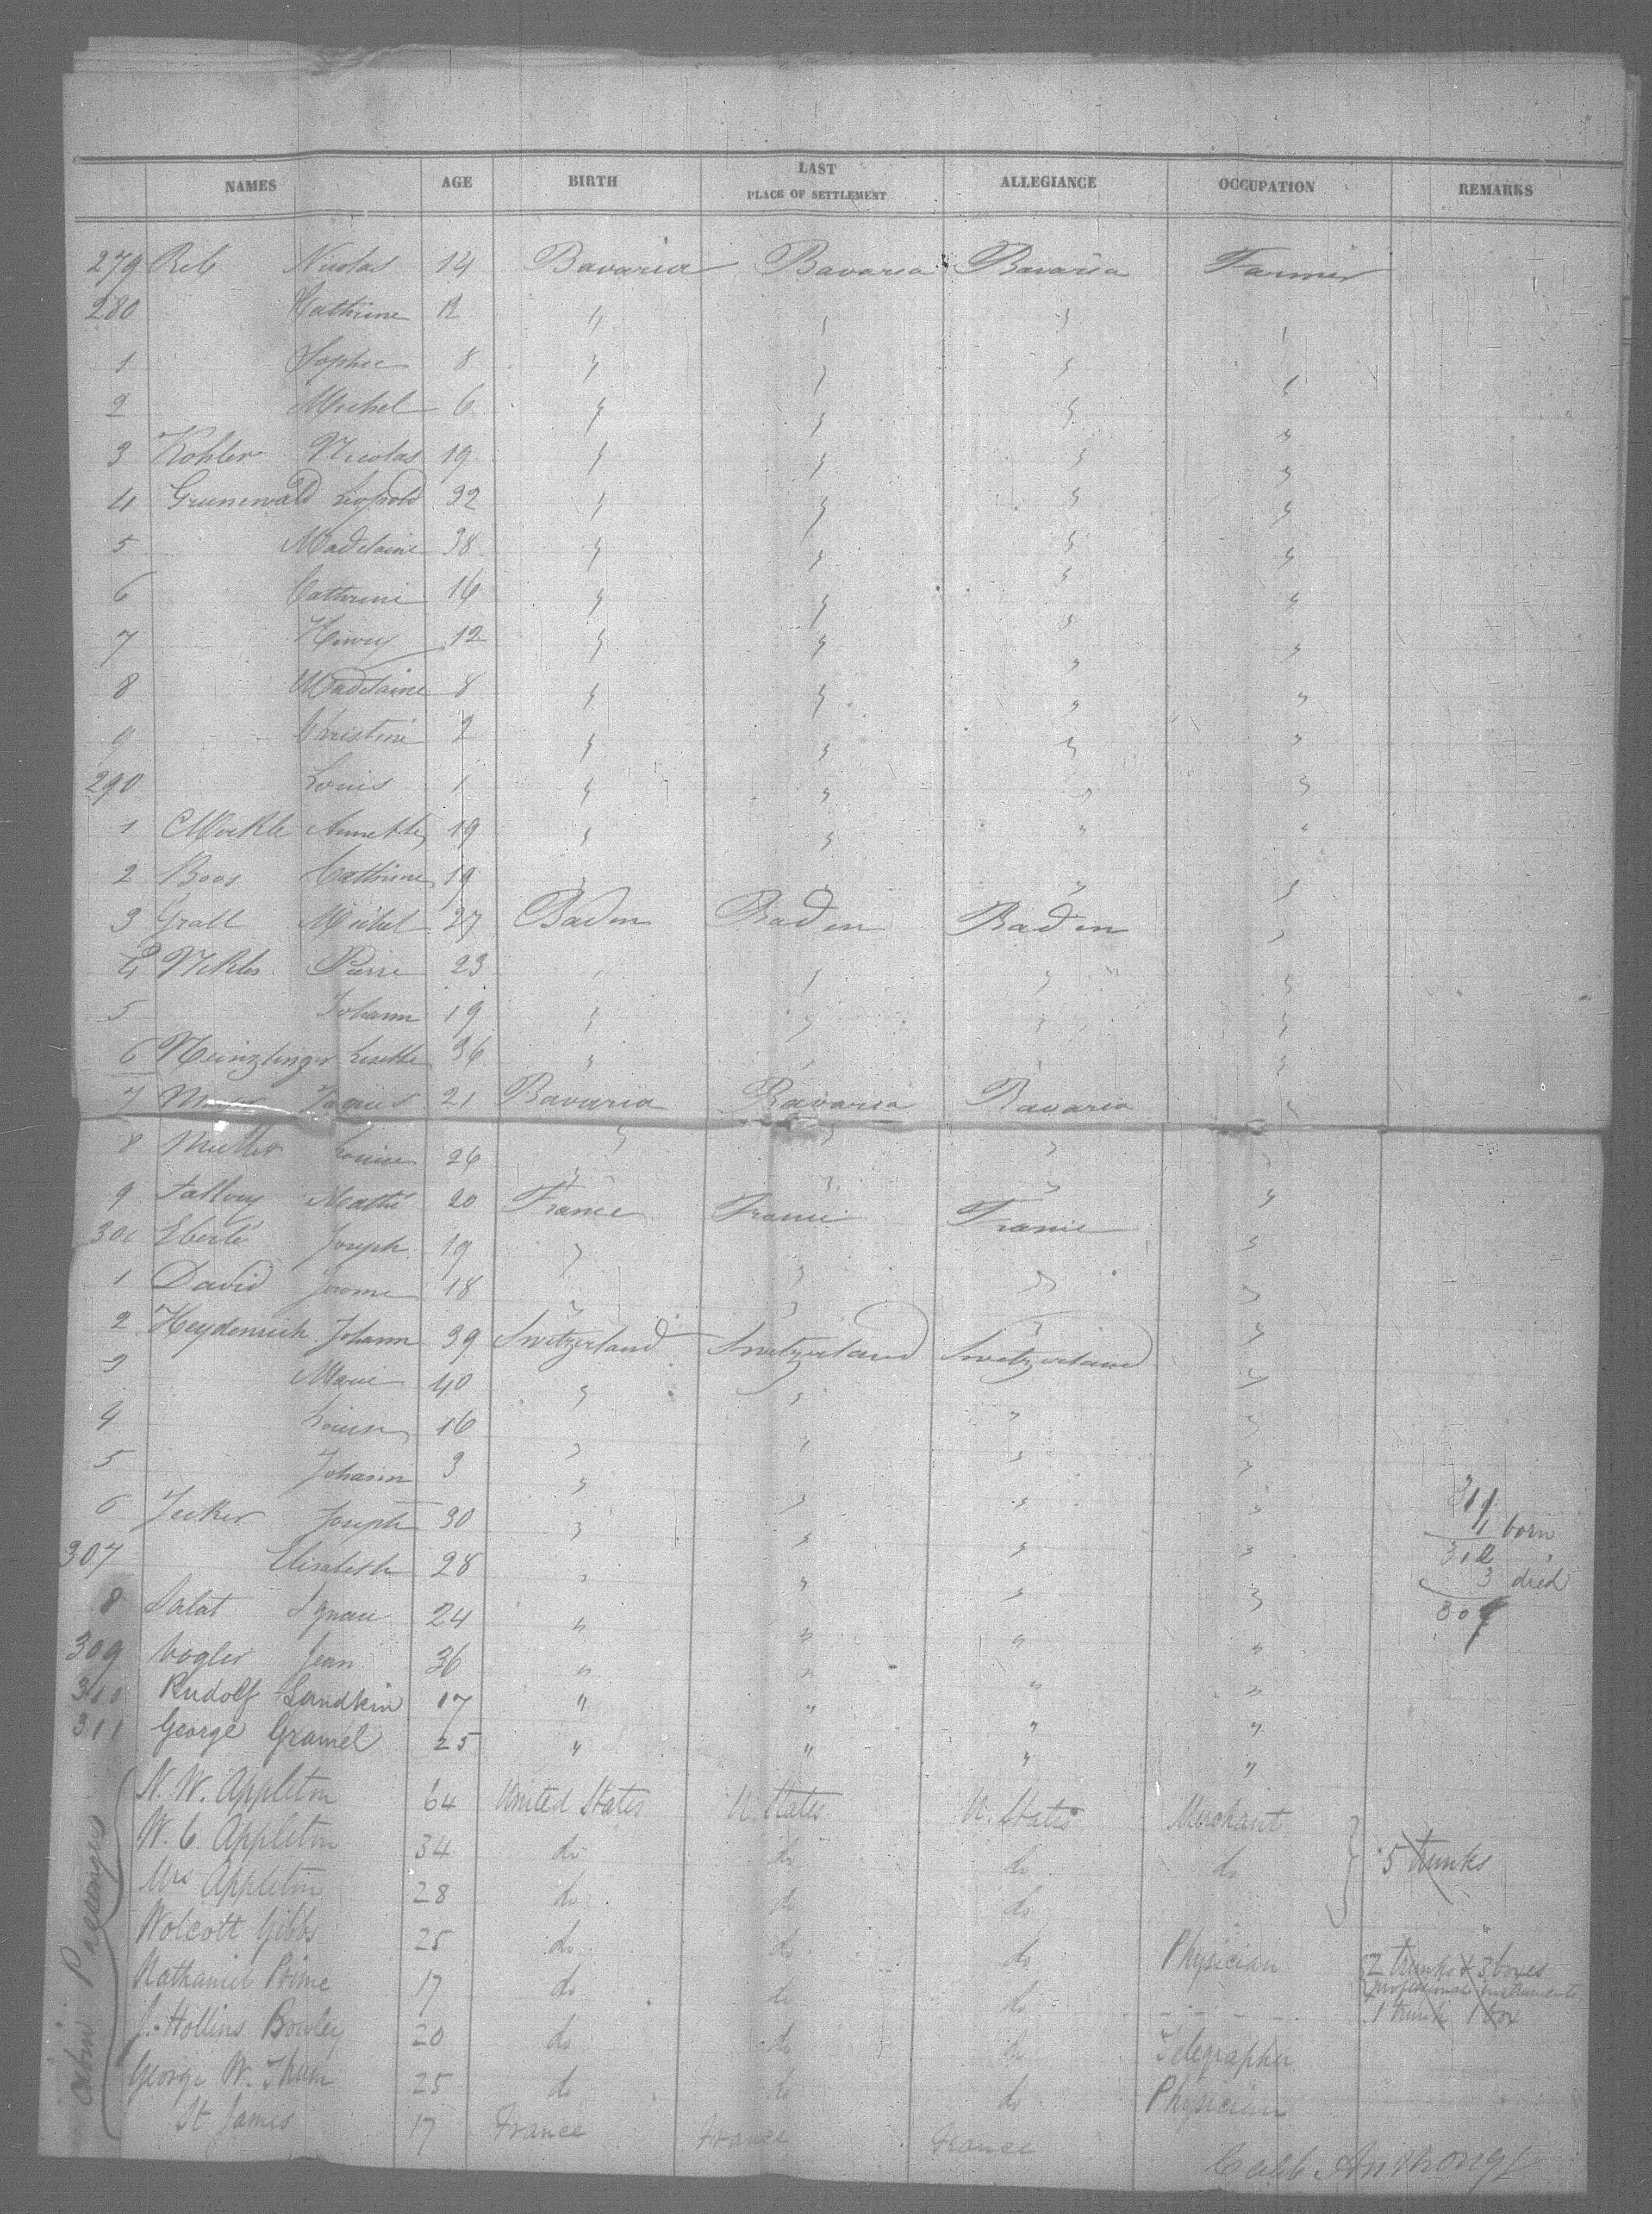 NAMES AGE BIRTH LAST PLACE OF SETTLEMENT ALLEGIANCE OCCUPATION REMARKS
279 Reb Nicolas 14 Bavaria Bavaria Bavaria Farmer
280 Cathrine 12 " " " "
1 Sophie 8 " " " "
2 Michel 6 " " " "
3 Kohler Nicolas 19 " " " "
4 Grunewald Leopold 32 " " " "
5 Madelaine 38 " " " "
6 Cathrine 16 " " " "
7 Henry 12 " " " "
8 Madelaine 8 " " " "
9 Christine 2 " " " "
290 Louis 1 " " " "
1 Annette 19 " " " "
2 Boos Cathrine 19 " " " "
3 Michel 27 Baden Baden Baden "
4 Pierre 23 " " " "
5 Johann 19 " " " "
6 Lisette 36 " " " "
7 21 Bavaria Bavaria Bavaria "
8 Muller Louise 26 " " " "
9 20 France France France "
300 Eberlé Joseph 19 " " " "
1 David Jerome 18 " " " "
2 Heydenreich Johann 39 Switzerland Switzerland Switzerland "
3 Marie 40 " " " "
4 Louise 16 " " " "
5 Johann 3 " " " "
6 Jecker Joseph 30 " " " "
307 Elisabeth 28 " " " "
8 Salat 24 " " " "
309 Vogler Jean 36 " " " "
310 Rudolf 17 " " " "
311 George Gramel 25 " " " "
311
1 born
312
3 died
309
Cabin Passengers
N. W. Appleton 64 United States U. States U. States Merchant
W. C. Appleton 34 do do do do 5 trunks
Mrs Appleton 28 do do do
Wolcott Gibbs 25 do do do Physician 2 trunks & 3 boxes
professional instruments
Nathaniel Prime 17 do do do - - - - 1 trunk 1 box
J. Hollins Bowley 20 do do do Telegrapher
George W. Thum 25 do do do Physician
St James 17 France France France
Caleb Anthony Jr